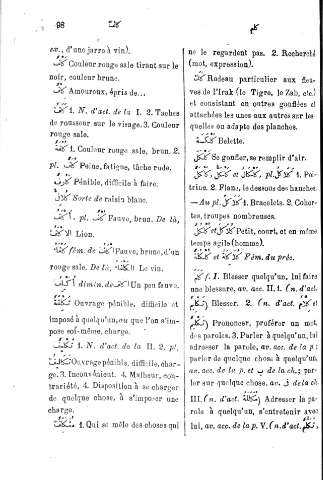 98
كلف
كلم
ex., d'une jarre à vin).
كَلَفٌ Couleur rouge sale tirant sur le
noir, couleur brune.
كَلِفٌ Amoureux, épris de...
كَلَفٌ 1. N. d'act. de la I. 2. Taches
de rousseur sur le visage. 3. Couleur
rouge sale.
كُلْفَةٌ 1. Couleur rouge sale, brun. 2.
pl. كُلَفٌ Peine, fatigue, tâche rude.
Pénible, difficile à faire.
Sorte de raisin blanc.
pl. كُلْفٌ Fauve, brun. De là,
Lion.
fém. de Fauve, brune, d'un
rouge sale. De là, Le vin.
dimin. de Un peu fauve.
Ouvrage pénible, difficile et
imposé à quelqu'un, ou que l'on s'im-
pose soi-même, charge.
1. N. d'act. de la II. 2. pl.
Ouvrage pénible, difficile, char-
ge. 3. Inconvénient. 4. Malheur, con-
trariété. 4. Disposition à se charger
de quelque chose, à s'imposer une
charge.
1. Qui se mêle des choses qui
ne le regardent pas. 2. Recherché
(mot, expression).
كلك Radeau particulier aux fleu-
ves de l'Irak (le Tigre, le Zab, etc.)
et consistant en outres gonflées et
attachées les unes aux autres sur les-
quelles on adapte des planches.
Belette.
Se gonfler, se remplir d'air.
pl. 1. Poi-
trine. 2. Flanc, le dessous des hanches.
—Au pl. 1. Bracelets. 2. Cohor-
tes, troupes nombreuses.
et Petit, court, et en même
temps agile (homme).
et Fém. du préc.
كلم f. I. Blesser quelqu'un, lui faire
une blessure, av. acc. II. 1. (n. d'act.
Blesser. 2. (n. d'act. et
Prononcer, proférer un mot
des paroles. 3. Parler à quelqu'un, lui
adresser la parole, av. acc. de la p.:
parler de quelque chose à quelqu'un,
av. acc. de la p. et ب de la ch.; par-
ler sur quelque chose, av. في de la ch.
III. (n. d'act. مكالمة) Adresser la pa-
role à quelqu'un, s'entretenir avec
lui, av. acc. de la p. V. (n. d'act. تكلم)